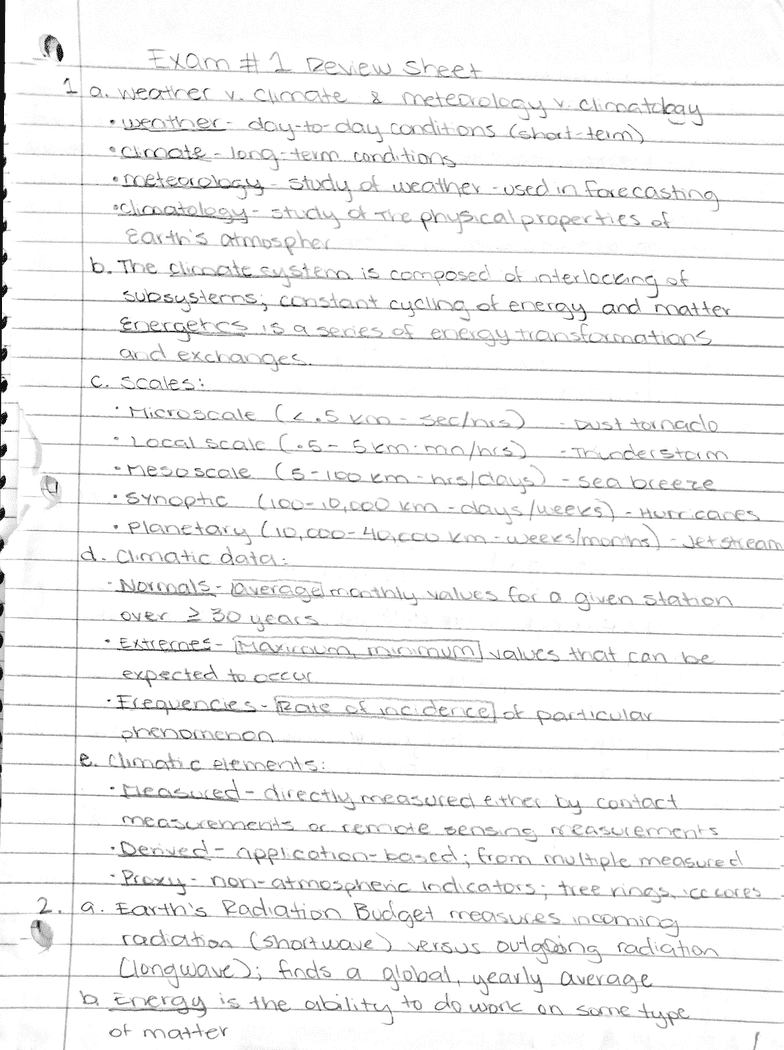 Exam # 1 Review Sheet
1 a. Weather v. Climate & meteorology v. climatology
• weather - day-to-day conditions (short-term)
• climate - long-term conditions
• meteorology - study of weather - used in forecasting
• climatology - study of the physical properties of
Earth's atmospher
b. The climate system is composed of interlocking of
subsystems; constant cycling of energy and matter
Energetics is a series of energy transformations
and exchanges.
c. Scales:
• Microscale (< .5 km - sec/hrs) - Dust tornado
• Local scale (.5 - 5 km - mn/hrs) - Thunderstorm
• Mesoscale (5-100 km - hrs/days) - sea breeze
• Synoptic (100-10,000 km - days/weeks) - Hurricanes
• Planetary (10,000-40,000 km - weeks/months) - Jet stream
d. Climatic data:
• Normals - average monthly values for a given station
over ≥ 30 years
• Extremes - Maximum, minimum values that can be
expected to occur
• Frequencies - Rate of incidence of particular
phenomenon
e. Climatic elements:
• Measured - directly measured either by contact
measurements or remote sensing measurements
• Derived - application-based; from multiple measured
• Proxy - non-atmospheric indicators; tree rings, ice cores
2. a. Earth's Radiation Budget measures incoming
radiation (shortwave) versus outgoing radiation
(longwave); finds a global, yearly average
b. Energy is the ability to do work on some type
of matter
1